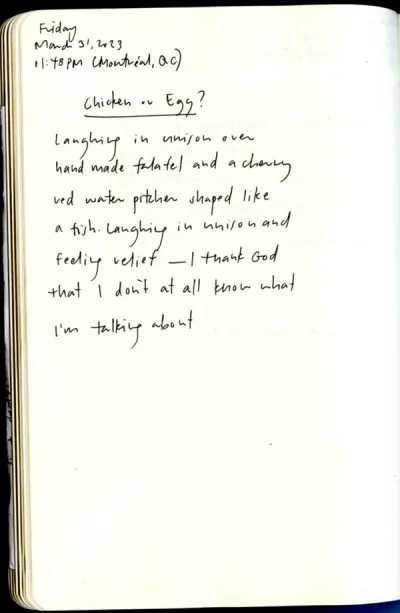 Friday
March 31, 2023
11:48 PM (Montréal, QC)
Chicken or Egg?
Laughing in unison over
hand made falafel and a cherry
red water pitcher shaped like
a fish. Laughing in unison and
feeling relief — I thank God
that I don't at all know what
I'm talking about